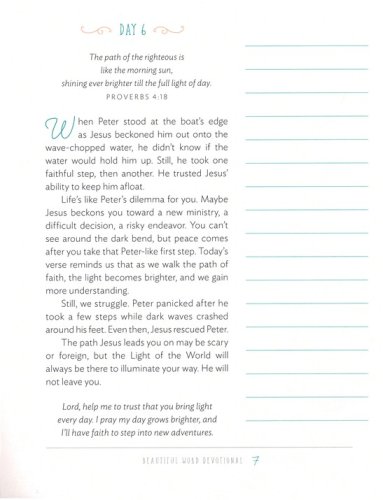 DAY 6
The path of the righteous is
like the morning sun,
shining ever brighter till the full light of day.
PROVERBS 4:18
When Peter stood at the boat's edge
as Jesus beckoned him out onto the
wave-chopped water, he didn't know if the
water would hold him up. Still, he took one
faithful step, then another. He trusted Jesus'
ability to keep him afloat.
Life's like Peter's dilemma for you. Maybe
Jesus beckons you toward a new ministry, a
difficult decision, a risky endeavor. You can't
see around the dark bend, but peace comes
after you take that Peter-like first step. Today's
verse reminds us that as we walk the path of
faith, the light becomes brighter, and we gain
more understanding.
Still, we struggle. Peter panicked after he
took a few steps while dark waves crashed
around his feet. Even then, Jesus rescued Peter.
The path Jesus leads you on may be scary
or foreign, but the Light of the World will
always be there to illuminate your way. He will
not leave you.
Lord, help me to trust that you bring light
every day. I pray my day grows brighter, and
I'll have faith to step into new adventures.
BEAUTIFUL WORD DEVOTIONAL 7